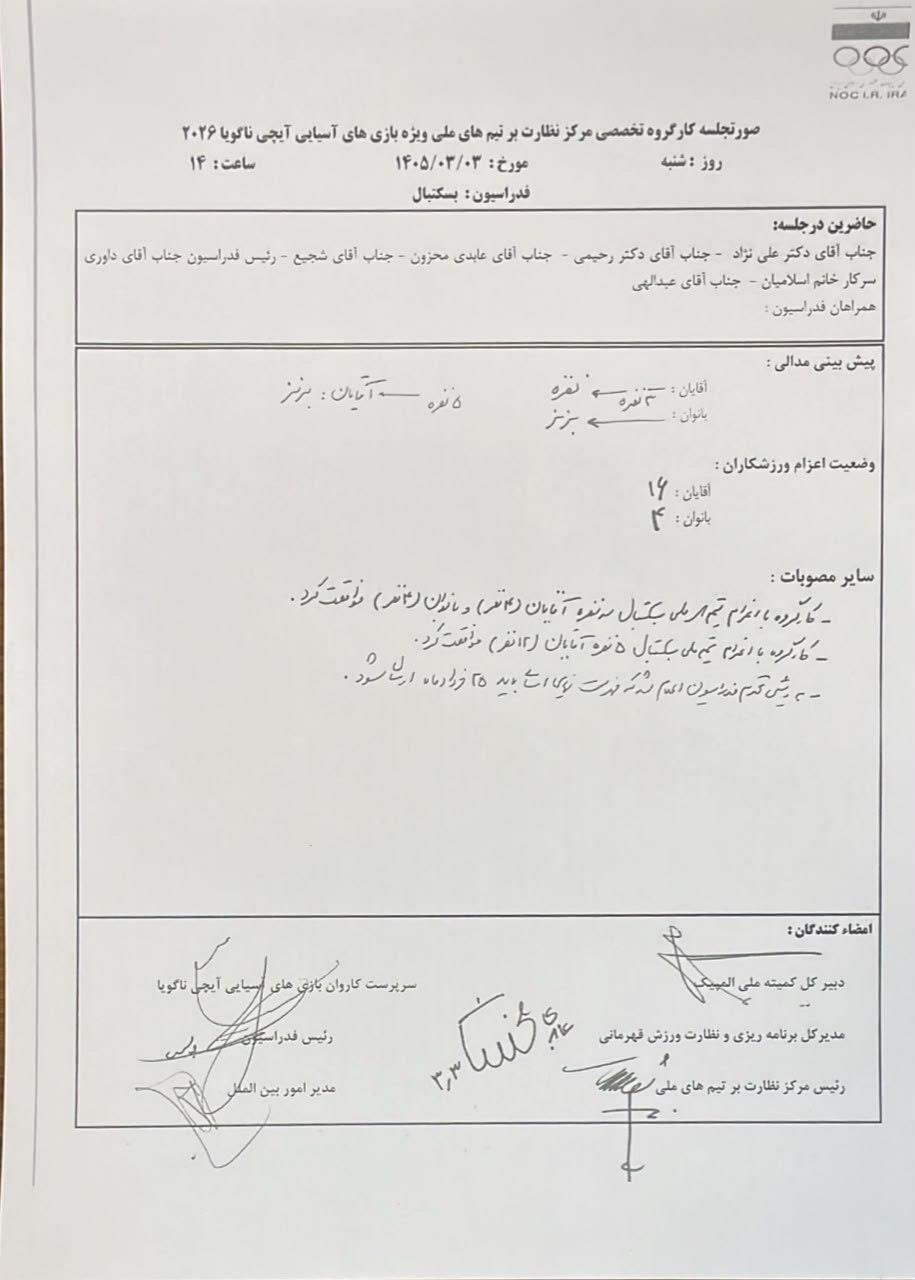 NOC I.R. IRA
صورتجلسه کارگروه تخصصی مرکز نظارت بر تیم های ملی ویژه بازی های آسیایی آیچی ناگویا ۲۰۲۶
روز : شنبه مورخ: ۱۴۰۵/۰۳/۰۳ ساعت: ۱۴
فدراسیون: بسکتبال
حاضرین درجلسه:
جناب آقای دکتر علی نژاد - جناب آقای دکتر رحیمی - جناب آقای عابدی محزون - جناب آقای شجیع - رئیس فدراسیون جناب آقای داوری
سرکار خانم اسلامیان - جناب آقای عبدالهی
همراهان فدراسیون :
پیش بینی مدالی :
آقایان : ۳ نفره ← نقره ۵ نفره ← آقایان : برنز
بانوان : ← برنز
وضعیت اعزام ورزشکاران :
آقایان : ۱۶
بانوان : ۴
سایر مصوبات :
- کارگروه با اعزام تیم های ملی بسکتبال سه نفره آقایان (۴ نفر) و بانوان (۴ نفر) موافقت کرد.
- کارگروه با اعزام تیم ملی بسکتبال ۵ نفره آقایان (۱۲ نفر) موافقت کرد.
- به رئیس محترم فدراسیون اعلام شد که فهرست نهایی اسامی باید ۲۵ خرداد ماه ارسال شود.
امضاء کنندگان:
دبیر کل کمیته ملی المپیک سرپرست کاروان بازی های آسیایی آیچی ناگویا
مدیرکل برنامه ریزی و نظارت ورزش قهرمانی رئیس فدراسیون
رئیس مرکز نظارت بر تیم های ملی مدیر امور بین الملل
۳٫۳